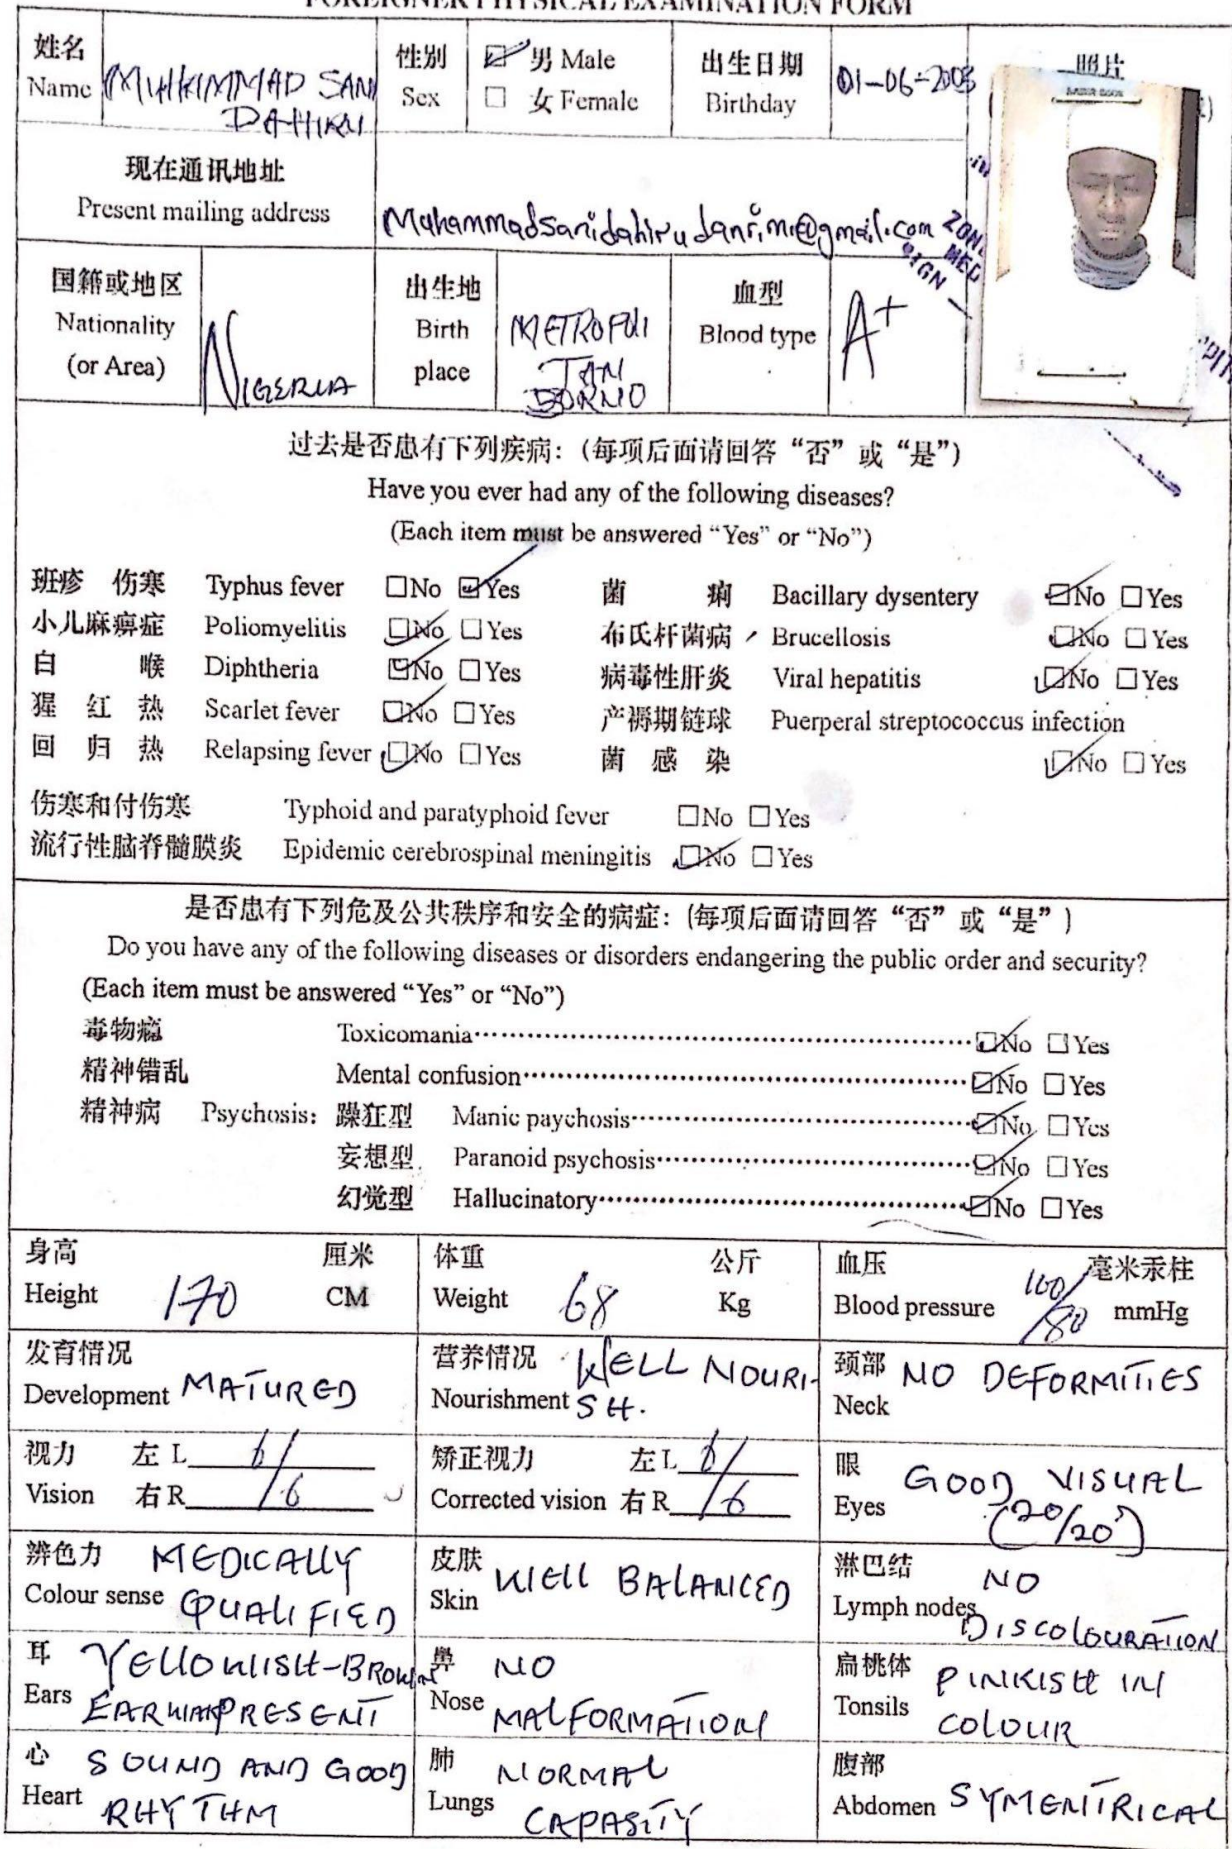 FOREIGNER PHYSICAL EXAMINATION FORM
姓名 Name MUHAMMAD SANI DAHIRU
性别 Sex ☑ 男 Male □ 女 Female
出生日期 Birthday 01-06-2003
照片
现在通讯地址
Present mailing address Muhammadsanidahirudanrimi@gmail.com
国籍或地区 Nationality (or Area) NIGERIA
出生地 Birth place METROPOLI TAN BORNO
血型 Blood type A+
过去是否患有下列疾病：(每项后面请回答“否”或“是”)
Have you ever had any of the following diseases?
(Each item must be answered “Yes” or “No”)
班疹 伤寒 Typhus fever □No ☑Yes 菌 痢 Bacillary dysentery ☑No □Yes
小儿麻痹症 Poliomyelitis ☑No □Yes 布氏杆菌病 Brucellosis ☑No □Yes
白 喉 Diphtheria ☑No □Yes 病毒性肝炎 Viral hepatitis ☑No □Yes
猩 红 热 Scarlet fever ☑No □Yes 产褥期链球 Puerperal streptococcus infection
回 归 热 Relapsing fever ☑No □Yes 菌 感 染 ☑No □Yes
伤寒和付伤寒 Typhoid and paratyphoid fever □No □Yes
流行性脑脊髓膜炎 Epidemic cerebrospinal meningitis ☑No □Yes
是否患有下列危及公共秩序和安全的病症：(每项后面请回答“否”或“是”)
Do you have any of the following diseases or disorders endangering the public order and security?
(Each item must be answered “Yes” or “No”)
毒物瘾 Toxicomania ☑No □Yes
精神错乱 Mental confusion ☑No □Yes
精神病 Psychosis: 躁狂型 Manic paychosis ☑No □Yes
妄想型 Paranoid psychosis ☑No □Yes
幻觉型 Hallucinatory ☑No □Yes
身高 Height 170 厘米 CM
体重 Weight 68 公斤 Kg
血压 Blood pressure 100/80 毫米汞柱 mmHg
发育情况 Development MATURED
营养情况 Nourishment WELL NOURI-SH.
颈部 Neck NO DEFORMITIES
视力 Vision 左 L 6/ 右 R /6
矫正视力 Corrected vision 左 L 6/ 右 R /6
眼 Eyes GOOD VISUAL (20/20)
辨色力 Colour sense MEDICALLY QUALIFIED
皮肤 Skin WELL BALANCED
淋巴结 Lymph nodes NO DISCOLOURATION
耳 Ears YELLOWISH-BROWN EARWAX PRESENT
鼻 Nose NO MALFORMATION
扁桃体 Tonsils PINKISH IN COLOUR
心 Heart SOUND AND GOOD RHYTHM
肺 Lungs NORMAL CAPASITY
腹部 Abdomen SYMENTRICAL